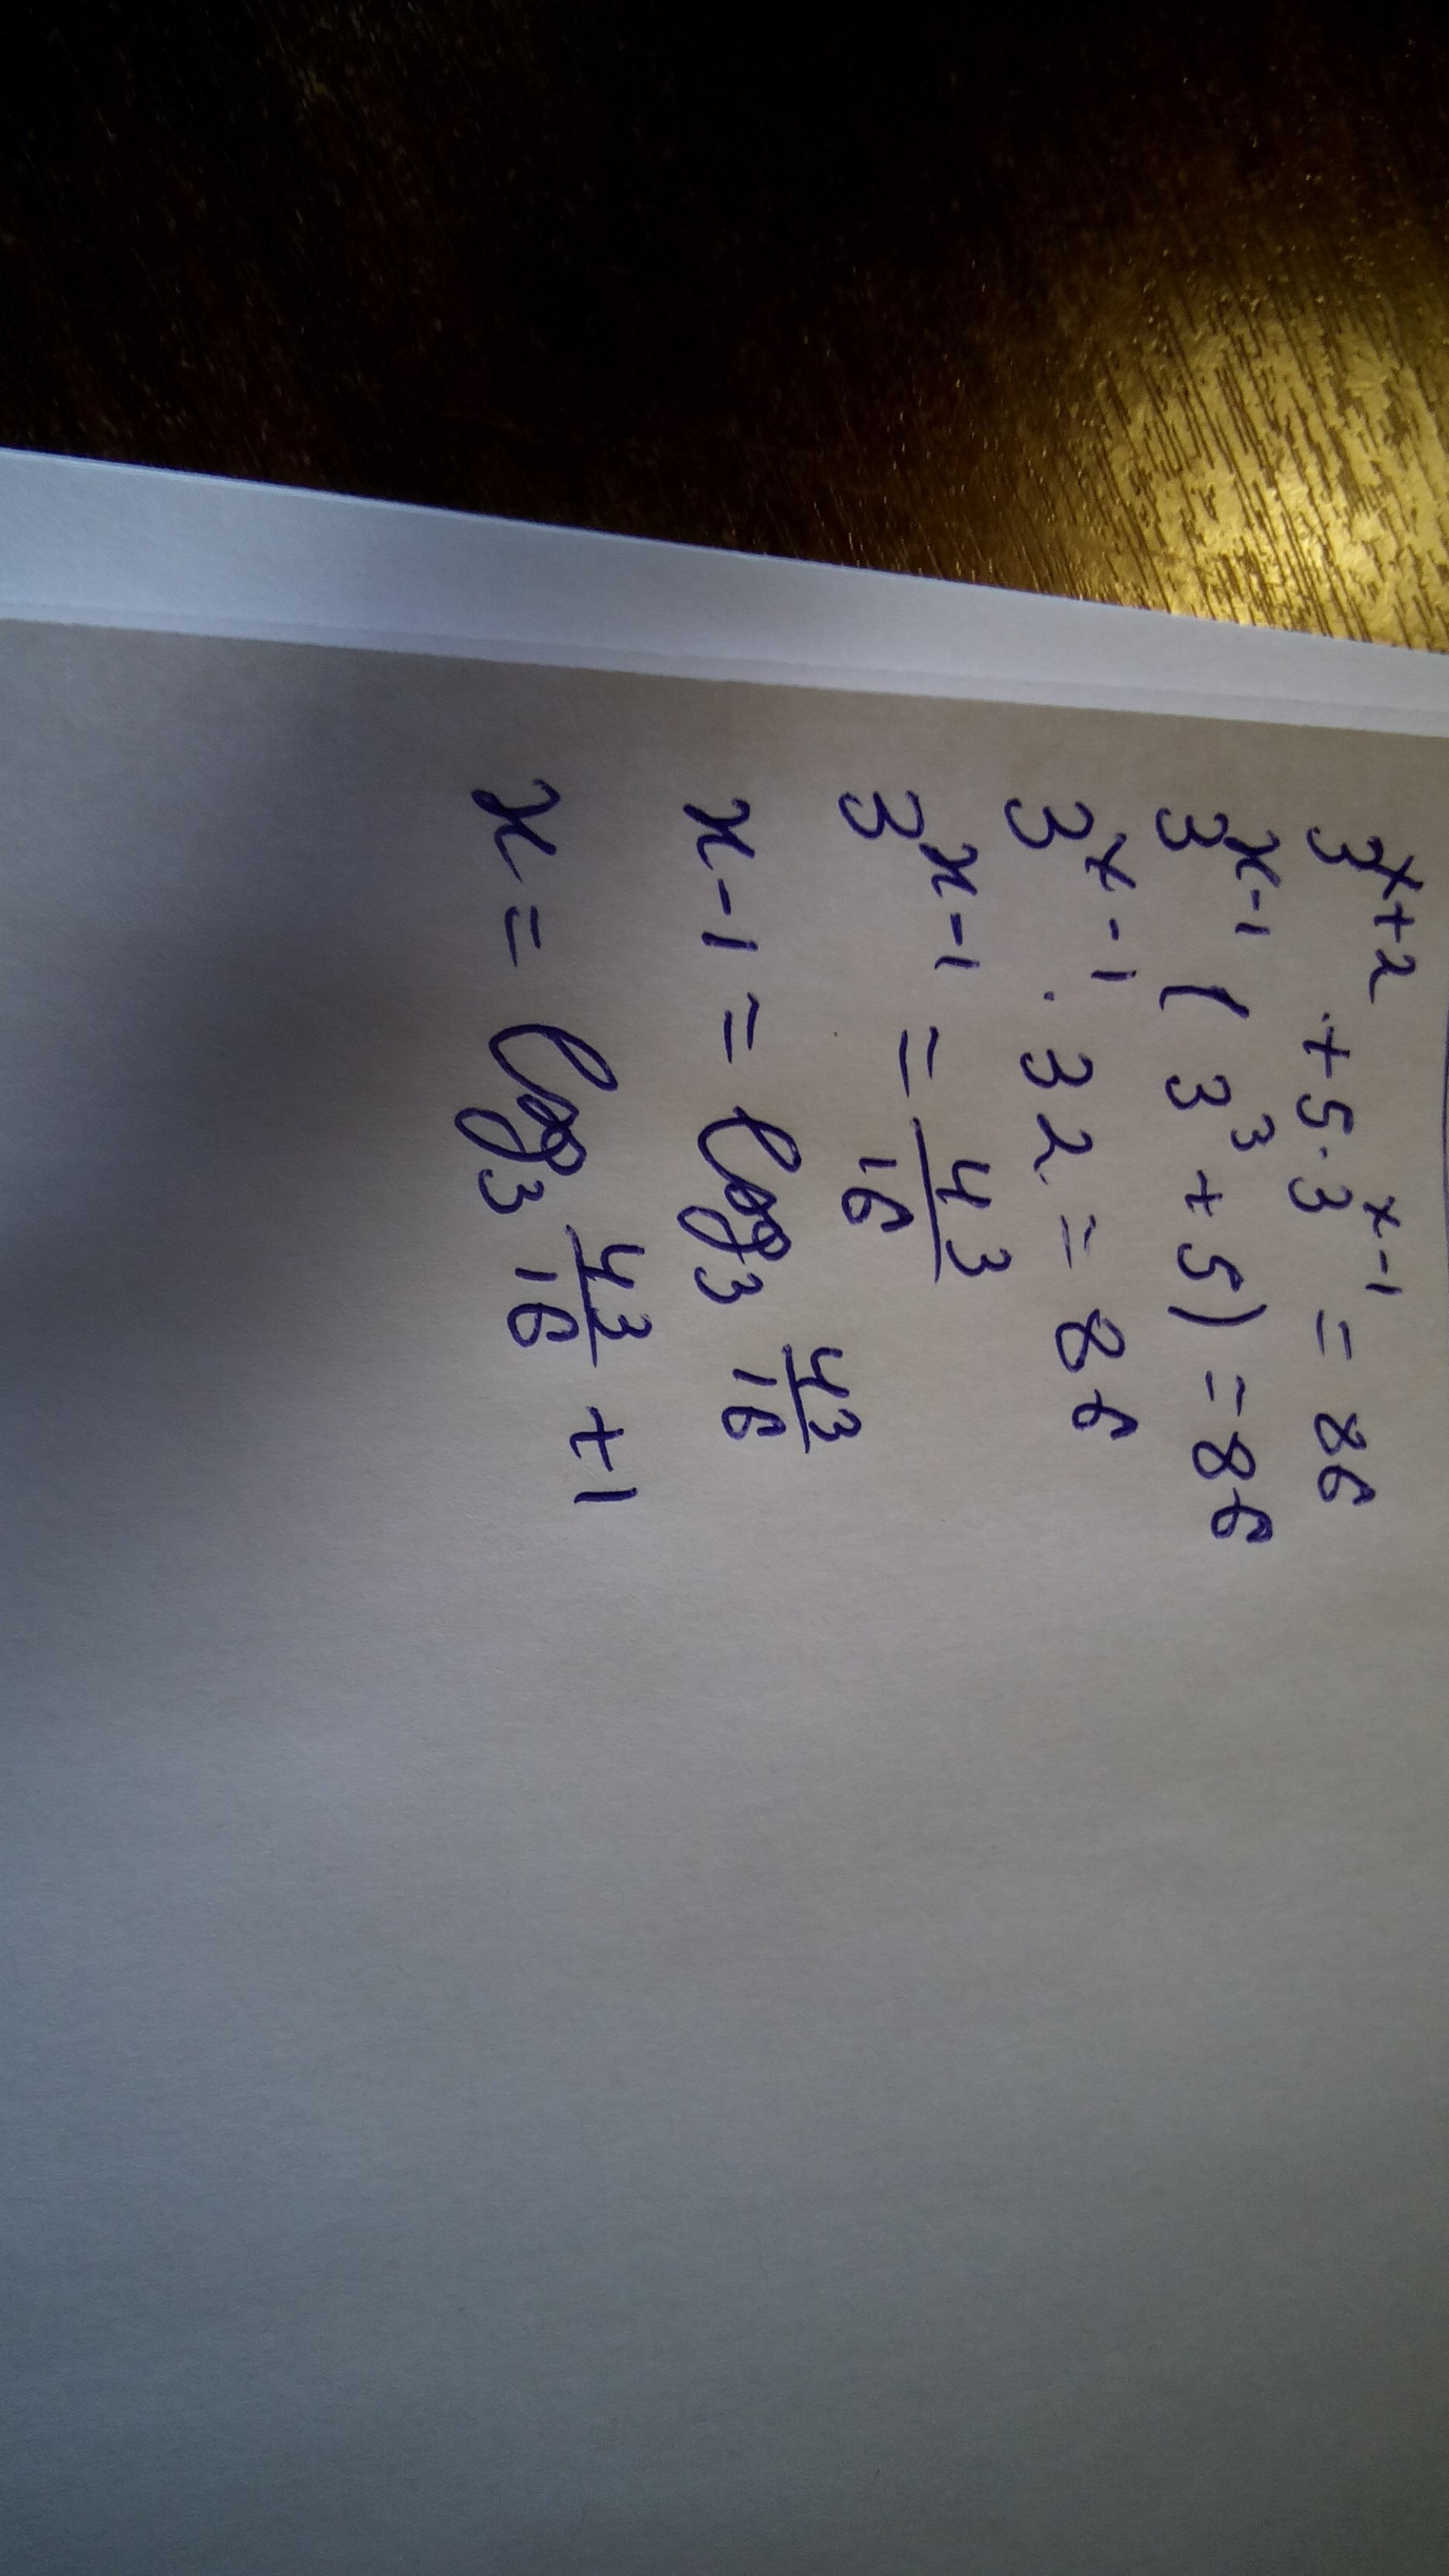 3^{x+2} + 5·3^{x-1} = 86
3^{x-1} (3^3 + 5) = 86
3^{x-1} · 32 = 86
3^{x-1} = \frac{43}{16}
x-1 = log_3 \frac{43}{16}
x = log_3 \frac{43}{16} + 1